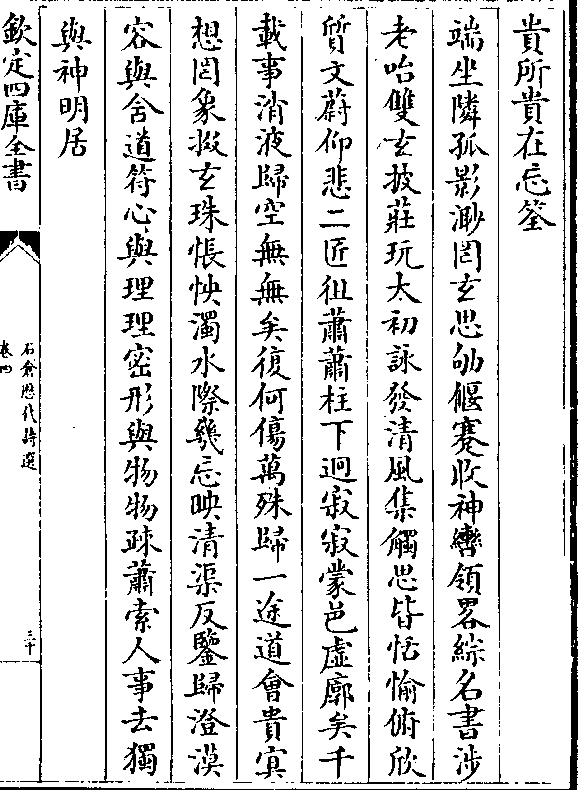 貴所貴在忘筌
端坐隣孤影渺罔玄思劬偃蹇收神轡領畧綜名書涉
老咍雙玄披莊玩太初詠發清風集觸思皆恬愉俯欣
質文蔚仰悲二匠徂蕭蕭柱下迥寂寂蒙邑虛廓矣千
載事消液歸空無無矣復何傷萬殊歸一途道會貴冥
想罔象掇玄珠悵怏濁水際幾忘映清渠反鑒歸澄漠
容與含道符心與理理密形與物物疎蕭索人事去獨
與神明居
欽定四庫全書
石倉歷代詩選
卷四
三十